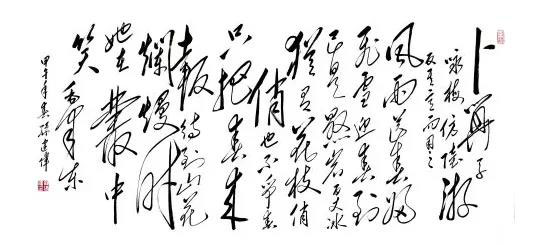 卜算子
咏梅 陆游
反其意而用之
风雨送春归
飞雪迎春到
已是悬崖百丈冰
犹有花枝俏
俏也不争春
只把春来
报 待到山花
烂熳时
她在丛中
笑
甲午年